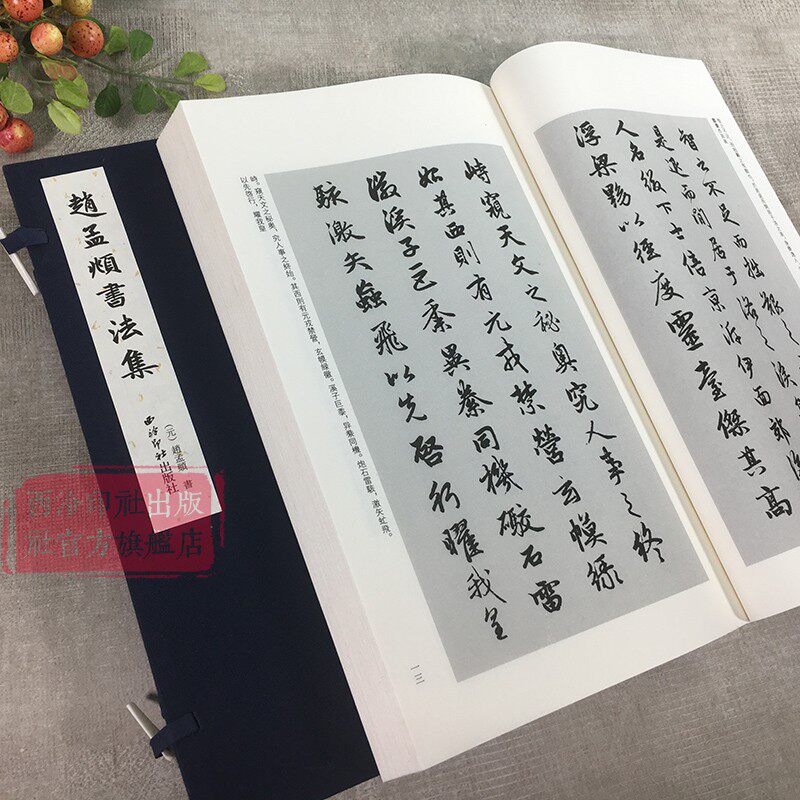 趙孟頫書法集
(元) 趙孟頫 書
西泠印社出版社
西泠印社出版
社官方旗艦店
智之不足而拙艱之
是退而閒居于洛之涘
人名綴下士倍京泝伊面郊
浮梁黝以徑度靈臺傑其高
峙窺天文之秘奧究人事之終
始其西則有元戎禁營玄幙綠
徽溪子巨黍異絭同機礮石雷
駭激矢蝱飛以先啓行曜我皇
峙。窺天文之秘奧,究人事之終始。其西則有元戎禁營,玄幙綠徽。溪子巨黍,异絭同機。炮石雷駭,激矢虻飛。
以先啓行,耀我皇
一三